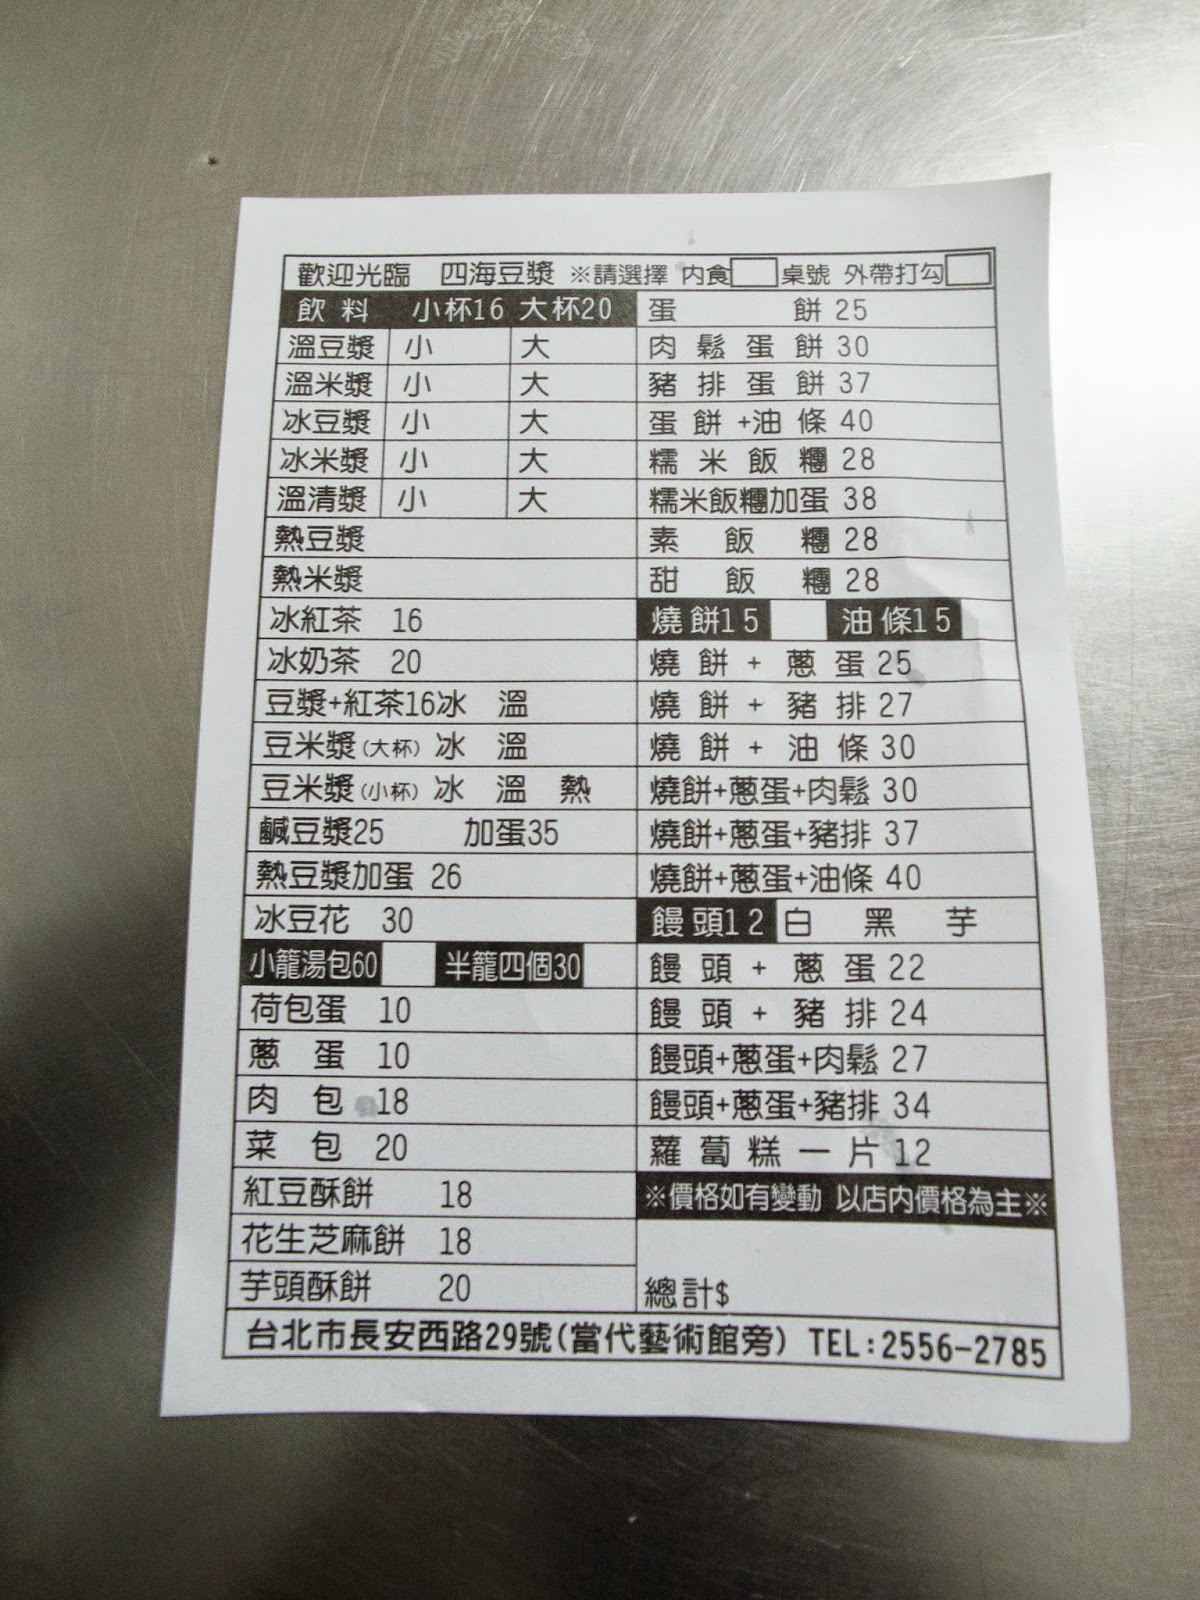 歡迎光臨 四海豆漿 ※請選擇 內食 桌號 外帶打勾
飲料 小杯16 大杯20
溫豆漿 小 大
溫米漿 小 大
冰豆漿 小 大
冰米漿 小 大
溫清漿 小 大
熱豆漿
熱米漿
冰紅茶 16
冰奶茶 20
豆漿+紅茶16冰 溫
豆米漿(大杯) 冰 溫
豆米漿(小杯) 冰 溫 熱
鹹豆漿25 加蛋35
熱豆漿加蛋 26
冰豆花 30
小籠湯包60 半籠四個30
荷包蛋 10
蔥蛋 10
肉包 18
菜包 20
紅豆酥餅 18
花生芝麻餅 18
芋頭酥餅 20
蛋餅 25
肉鬆蛋餅 30
豬排蛋餅 37
蛋餅+油條 40
糯米飯糰 28
糯米飯糰加蛋 38
素飯糰 28
甜飯糰 28
燒餅15 油條15
燒餅+蔥蛋 25
燒餅+豬排 27
燒餅+油條 30
燒餅+蔥蛋+肉鬆 30
燒餅+蔥蛋+豬排 37
燒餅+蔥蛋+油條 40
饅頭12 白 黑 芋
饅頭+蔥蛋 22
饅頭+豬排 24
饅頭+蔥蛋+肉鬆 27
饅頭+蔥蛋+豬排 34
蘿蔔糕一片 12
※價格如有變動 以店內價格為主※
總計$
台北市長安西路29號(當代藝術館旁) TEL:2556-2785